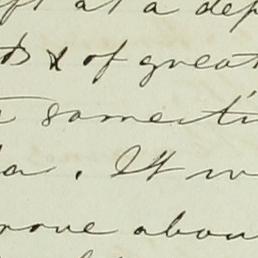 at a dep
& of great
someti
. It w
rove abou